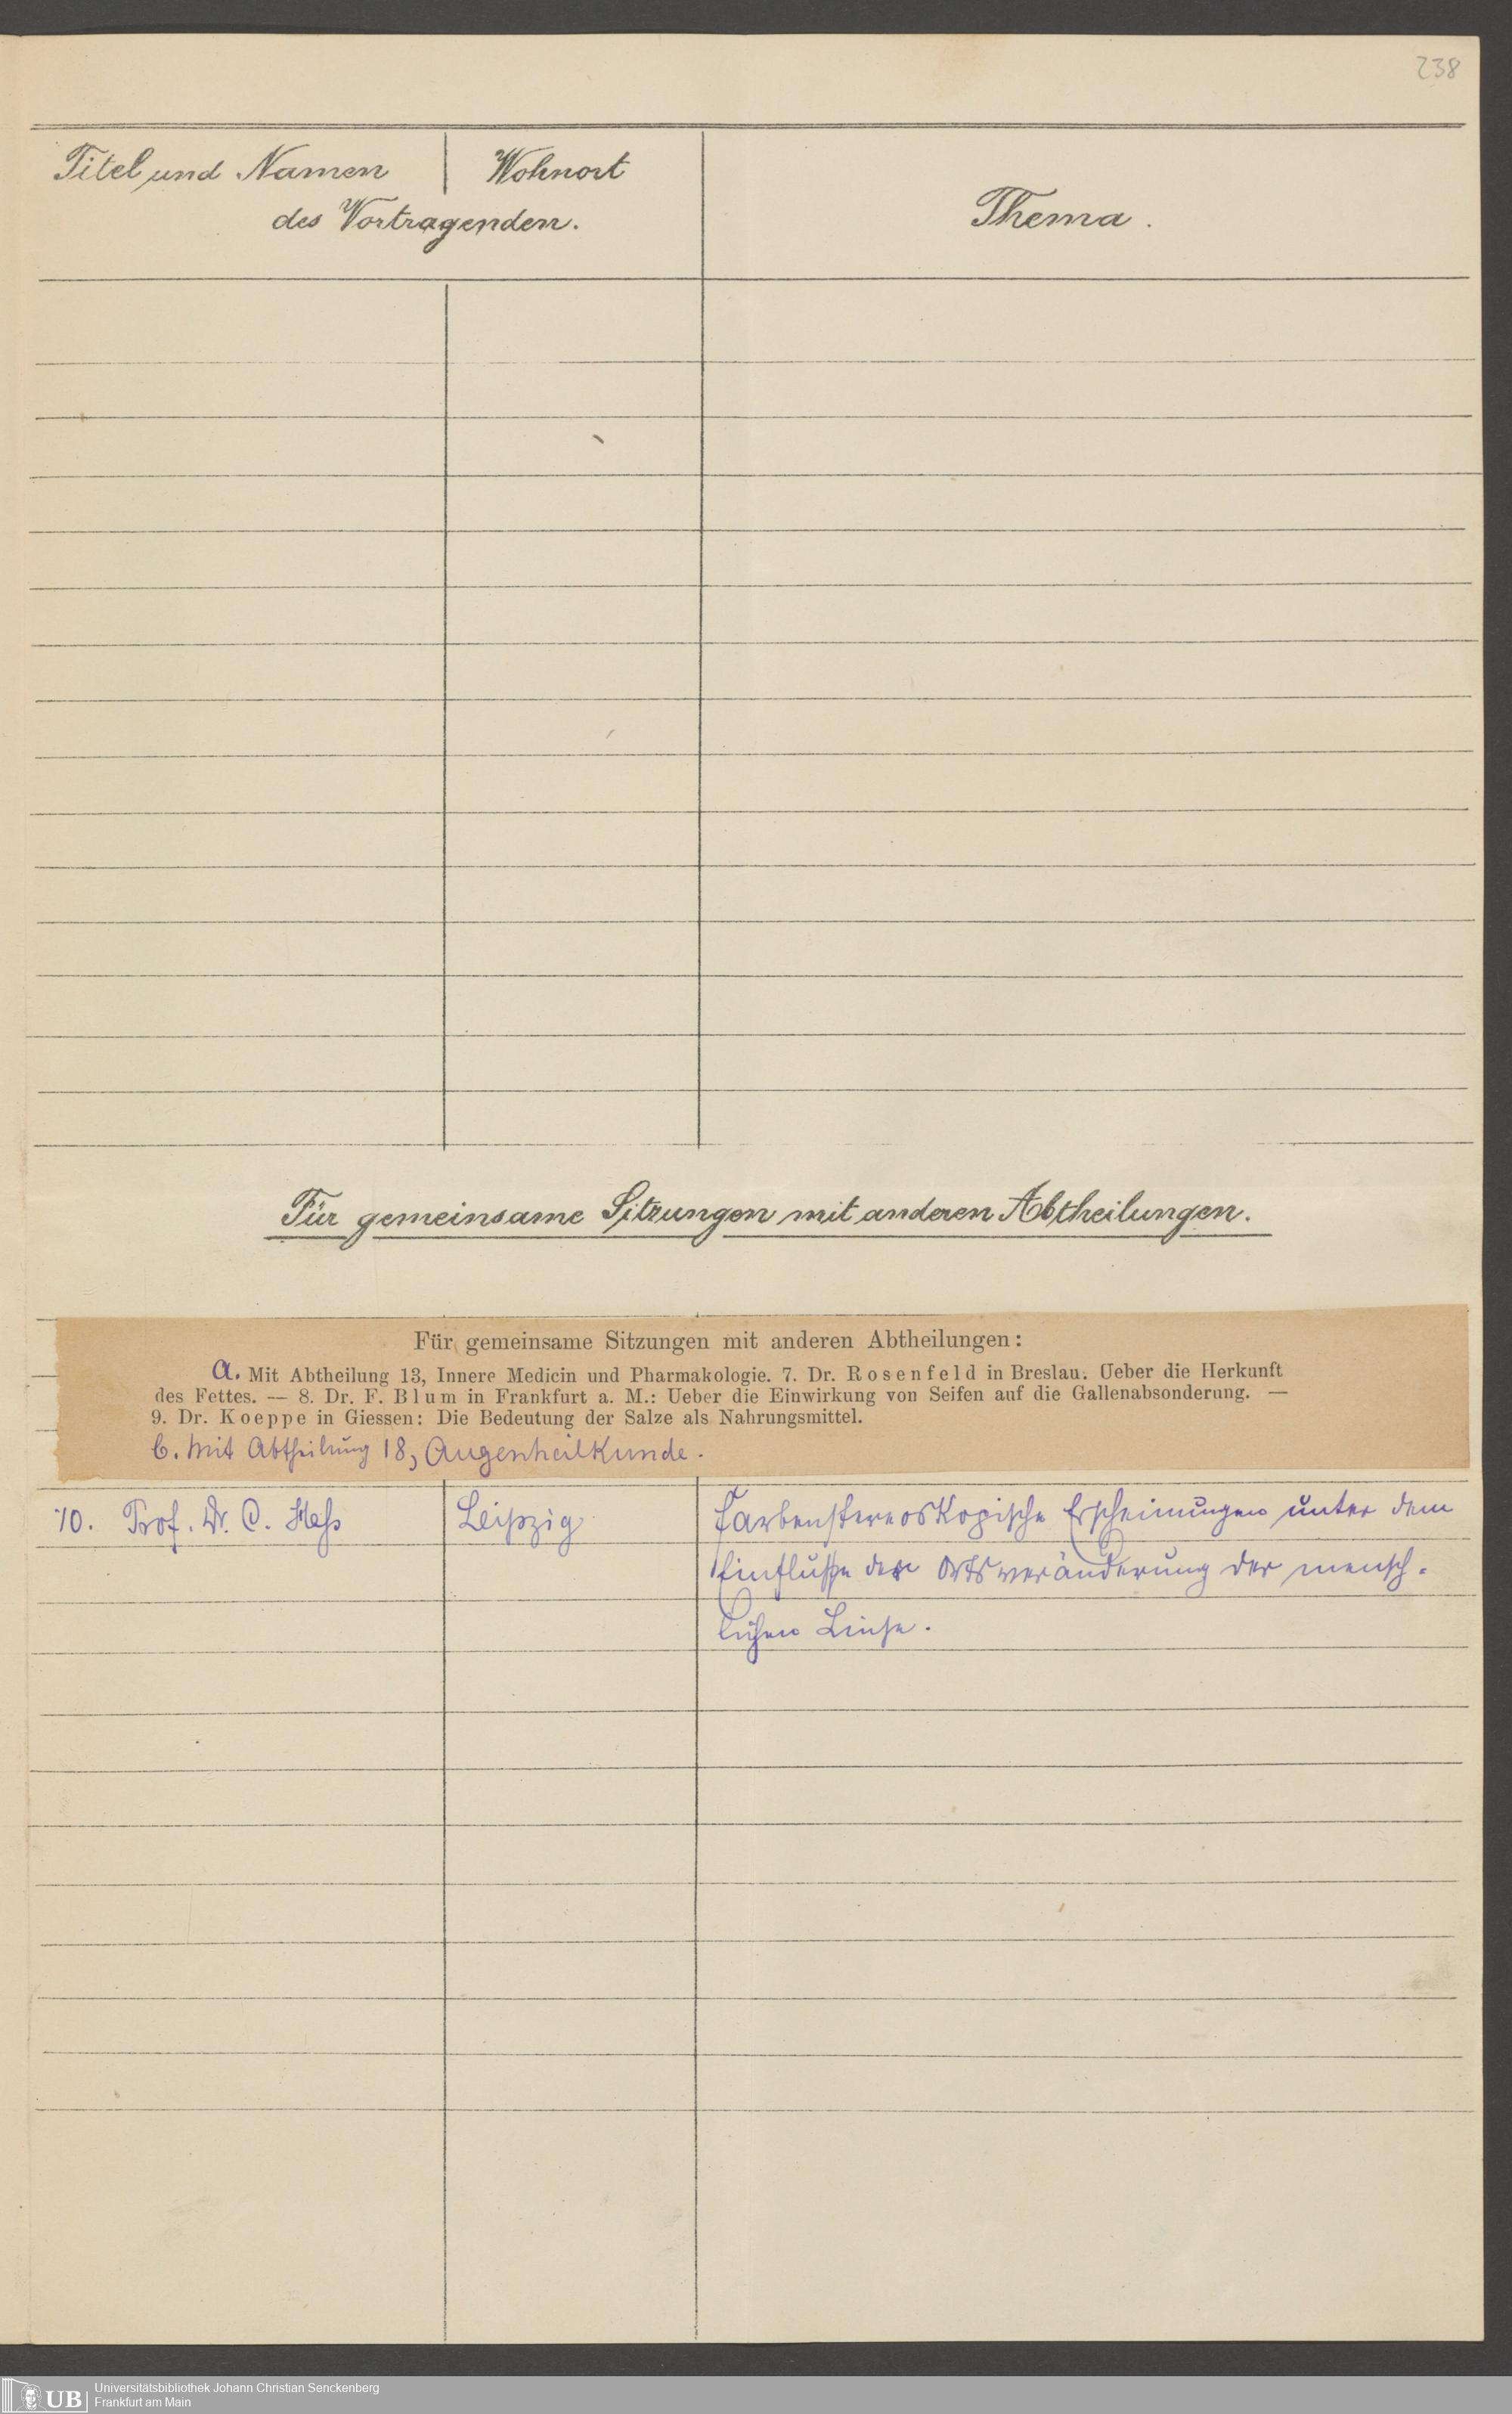 238
Titel und Namen Wohnort
des Vortragenden.
Thema.
Für gemeinsame Sitzungen mit anderen Abtheilungen.
Für gemeinsame Sitzungen mit anderen Abtheilungen:
a. Mit Abtheilung 13, Innere Medicin und Pharmakologie. 7. Dr. Rosenfeld in Breslau. Ueber die Herkunft
des Fettes. — 8. Dr. F. Blum in Frankfurt a. M.: Ueber die Einwirkung von Seifen auf die Gallenabsonderung. —
9. Dr. Koeppe in Giessen: Die Bedeutung der Salze als Nahrungsmittel.
b. Mit Abtheilung 18, Augenheilkunde.
10. Prof. Dr. C. Heß Leipzig Farbenstereoskopische Erscheinungen unter dem
Einfluße der Ortsveränderung der mensch-
lichen Linse.
UB Universitätsbibliothek Johann Christian Senckenberg
Frankfurt am Main